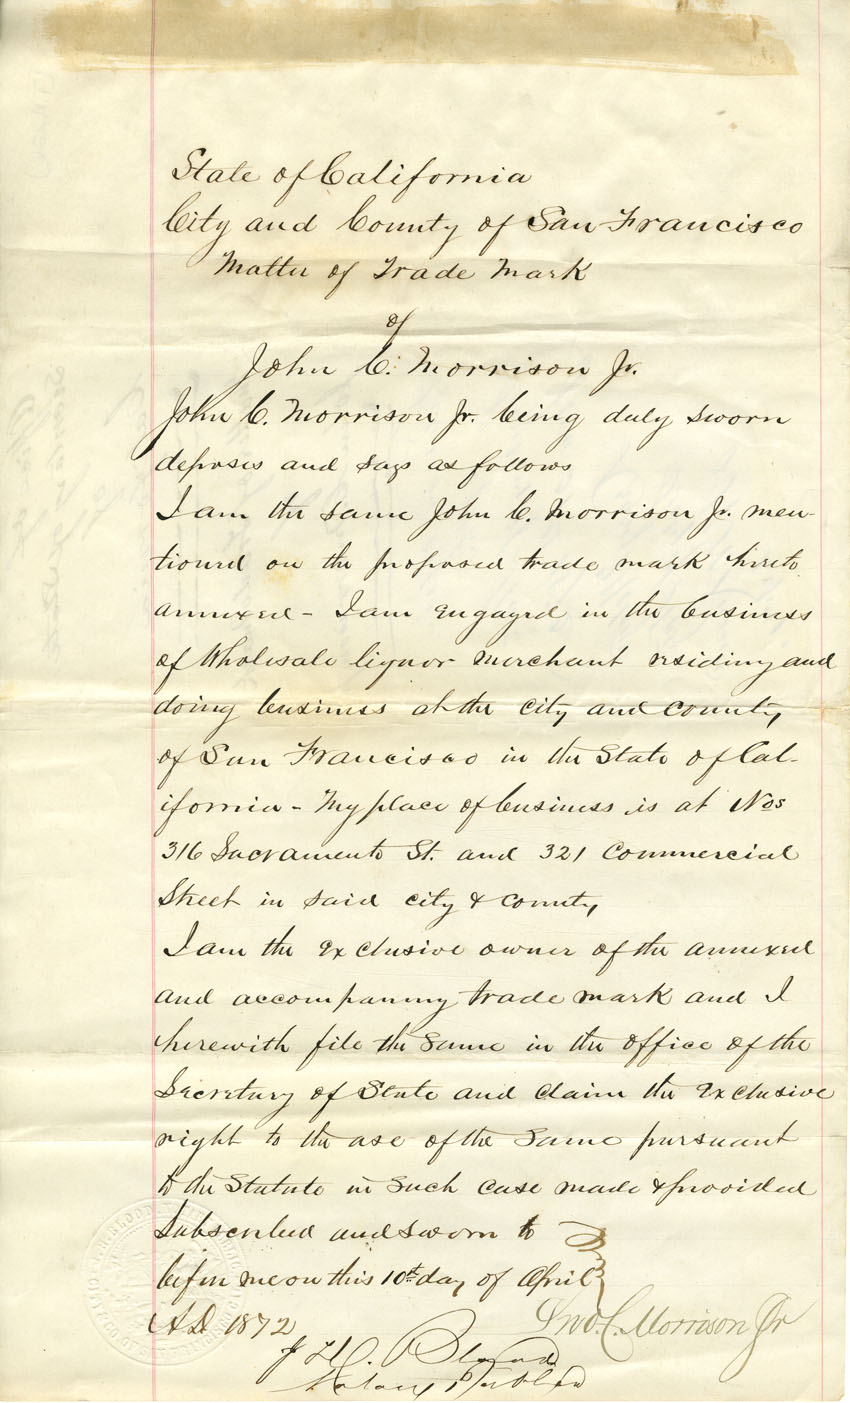 State of California
City and County of San Francisco
Matter of Trade Mark
of
John C. Morrison Jr.
John C. Morrison Jr. being duly sworn
deposes and says as follows
I am the same John C. Morrison Jr. men-
tioned on the proposed trade mark hereto
annexed - I am engaged in the business
of Wholesale liquor merchant residing and
doing business at the city and county
of San Francisco in the State of Cal-
ifornia - My place of business is at Nos
316 Sacramento St. and 321 Commercial
Street in said city & county
I am the exclusive owner of the annexed
and accompanying trade mark and I
herewith file the same in the office of the
Secretary of State and claim the exclusive
right to the use of the same pursuant
to the Statute in such case made & provided
Subscribed and sworn to
before me on this 10th day of April
A.D. 1872
Jno. C. Morrison Jr
J H. Blood
Notary Public